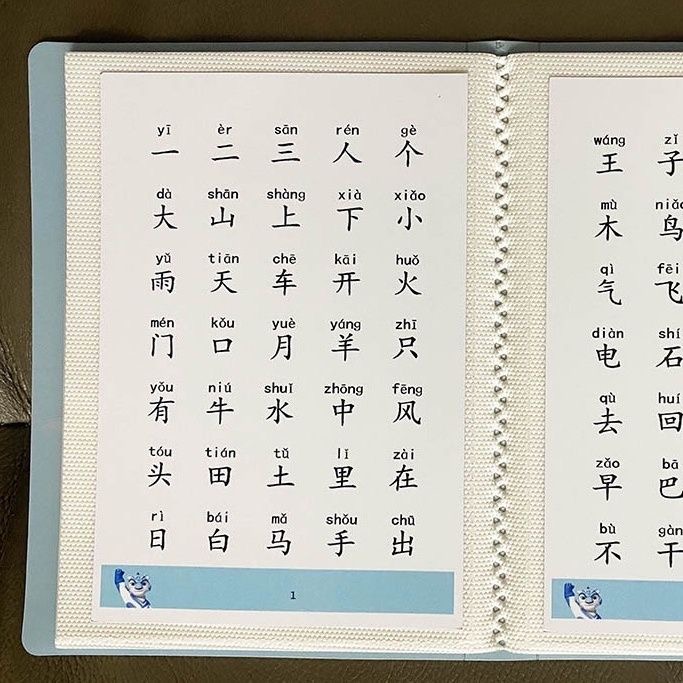 yī èr sān rén gè
一 二 三 人 个
dà shān shàng xià xiǎo
大 山 上 下 小
yǔ tiān chē kāi huǒ
雨 天 车 开 火
mén kǒu yuè yáng zhī
门 口 月 羊 只
yǒu niú shuǐ zhōng fēng
有 牛 水 中 风
tóu tián tǔ lǐ zài
头 田 土 里 在
rì bái mǎ shǒu chū
日 白 马 手 出
1
wáng zǐ
王 子
mù niǎo
木 鸟
qì fēi
气 飞
diàn shí
电 石
qù huí
去 回
zǎo bā
早 巴
bù gàn
不 干